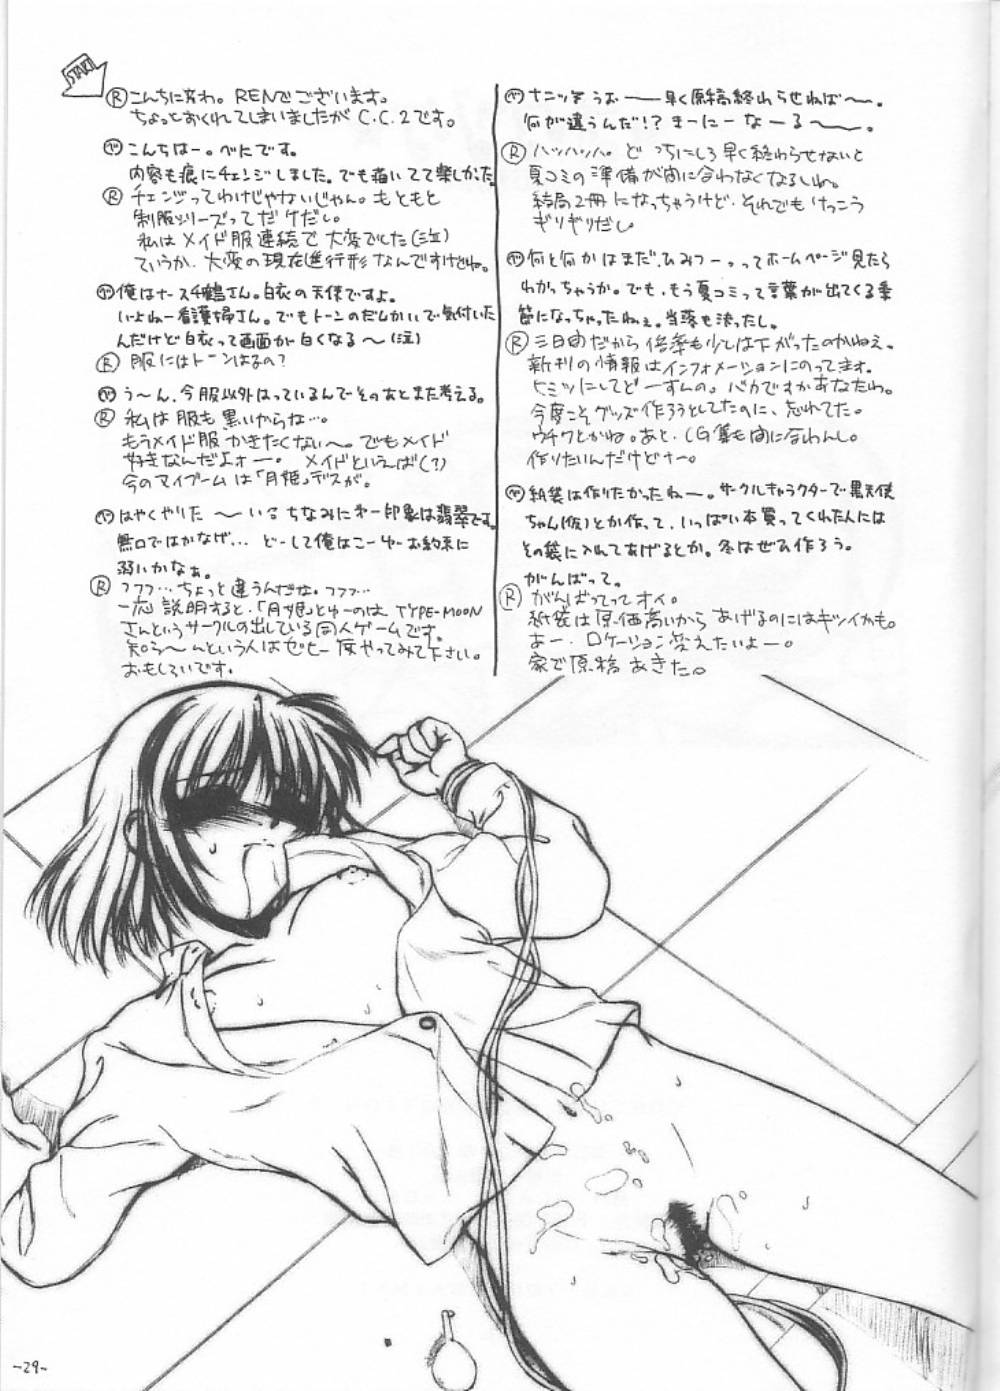 START
Ⓡ こんちに変わ。RENでございます。
ちょっとおくれてしまいましたがC.C.2です。
ベ こんちはー。べにです。
内容も痕にチェンジしました。でも描いてて楽しかった
Ⓡ チェンジってわけじゃないじゃん。もともと
制服シリーズってだケだし。
私はメイド服連続で大変でした(泣)
ていうか、大変の現在進行形なんですけどね。
ベ 俺はナース千鶴さん。白衣の天使ですよ。
いよねー看護婦さん。でもトーンのだんかいで気付いた
んだけど白衣って画面が白くなる〜(泣)
Ⓡ 服にはトーンはるの?
ベ う〜ん、今服以外はっているんでそのあとまた考える。
Ⓡ 私は服も黒いからな…。
もうメイド服かきたくない〜。でもメイド
好きなんだよォー。 メイドといえば(?)
今のマイブームは「月姫」デスが。
ベ はやくやりた〜いる ちなみに第一印象は翡翠です。
無口ではかなげ… どーして俺はこーゆーお約束に
弱いかなぁ。
Ⓡ フフフ…ちょっと違うんだな。フフフ…
一応説明すると、「月姫」とゆーのはTYPE-MOON
さんというサークルの出している同人ゲームです。
知ら〜んという人はゼヒ一度やってみて下さい。
おもしろいです。
ベ ナニッ? うおー 早く原稿終わらせねば〜。
何が違うんだ!? きーにーなーる〜。
Ⓡ ハッハッハ。どっちにしろ早く終わらせないと
夏コミの準備が間に合わなくなるしね。
結局2冊になっちゃうけど、それでもけっこう
ギリギリだし。
ベ 何と何かはまだ、ひみつー。ってホームページ見たら
わかっちゃうか。でも、もう夏コミって言葉が出てくる季
節になっちゃったねぇ。当落も決ったし。
Ⓡ 三日間だから倍率も少しは下がったのかねえ。
新刊の情報はインフォメーションにのってます。
ヒミツにしてどーすんの。バカですかあなたわ。
今度こそグッズ作ろうとしてたのに、忘れてた。
ウチワとかね。あと、CG集も間に合わんし。
作りたいんだけどナー。
ベ 紙袋は作りたかったねー。サークルキャラクターで黒天使
ちゃん(仮)とか作って、いっぱい本買ってくれた人には
その袋に入れてあげるとか。冬はぜひ作ろう。
がんばって。
Ⓡ がんばってってオイ。
紙袋は原価高いからあげるのにはキツイかも。
あー、ロケーション変えたいよー。
家で原稿あきた。
-29-